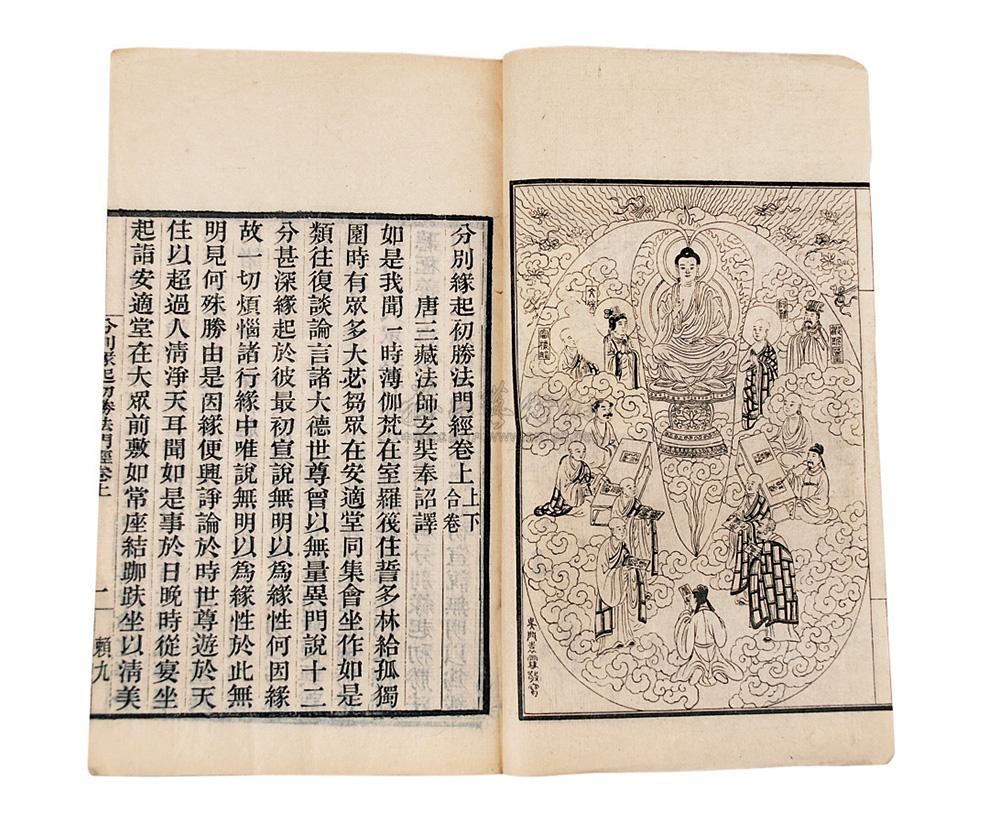 分別緣起初勝法門經卷上 上下合卷
唐三藏法師玄奘奉詔譯
如是我聞一時薄伽梵在室羅筏住誓多林給孤獨
園時有眾多大苾芻眾在安適堂同集會坐作如是
類往復談論言諸大德世尊曾以無量異門說十二
分甚深緣起於彼最初宣說無明以爲緣性何因緣
故一切煩惱諸行緣中唯說無明以爲緣性於此無
明見何殊勝由是因緣便興諍論於時世尊遊於天
住以超過人清淨天耳聞如是事於日晚時從宴坐
起詣安適堂在大眾前敷如常座結跏趺坐以清美
分別緣起初勝法門經卷上 二 賴九